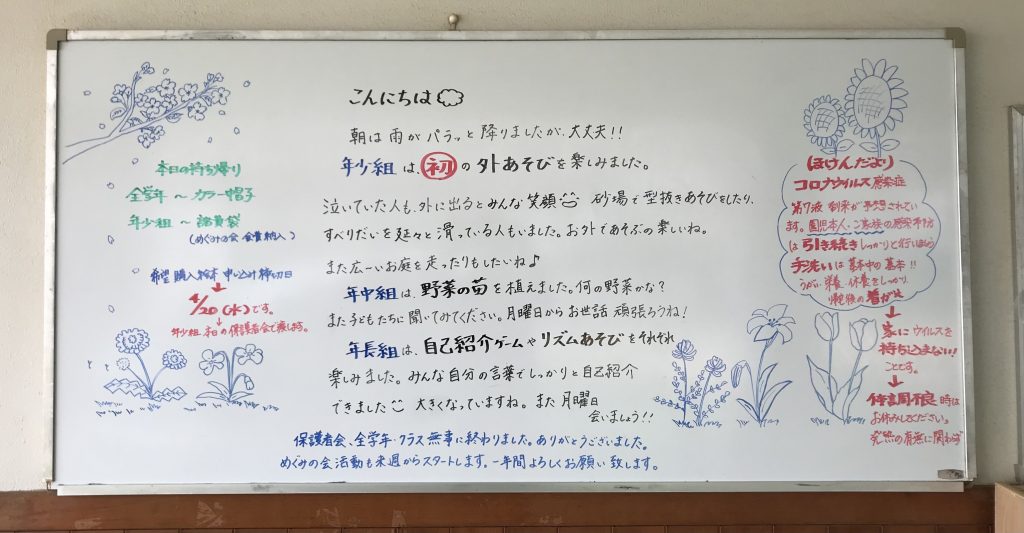 こんにちは
朝は雨がパラッと降りましたが、大丈夫!!
年少組は、初の外あそびを楽しみました。
泣いていた人も、外に出るとみんな笑顔 砂場で型抜きあそびをしたり、
すべりだいを延々と滑っている人もいました。お外であそぶの楽しいね。
また広ーいお庭を走ったりもしたいね♪
年中組は、野菜の苗を植えました。何の野菜かな?
また子どもたちに聞いてみてください。月曜日からお世話頑張ろうね!
年長組は、自己紹介ゲームやリズムあそびをそれぞれ
楽しみました。みんな自分の言葉でしっかりと自己紹介
できました 大きくなっていますね。また月曜日
会いましょう!!
保護者会、全学年・クラス無事に終わりました。ありがとうございました。
めぐみの会活動も来週からスタートします。一年間よろしくお願い致します。
本日の持ち帰り
全学年〜カラー帽子
年少組〜諸費袋
(めぐみの会 会費納入)
希望購入絵本申し込み締切日
↓
4/20(水)です。
年少組 本日の保護者会で渡し済。
ほけんだより
コロナウイルス感染症
第7波 到来が予想されてい
ます。園児本人・ご家族の感染予防
は引き続きしっかりと行いましょう
手洗いは基本中の基本!!
うがい、栄養、休養をしっかり
帰宅後の着がえ
↓
家にウイルスを
持ち込まない!
ことです。
↓
体調不良時は
お休みしてください。
発熱の有無に関わらず